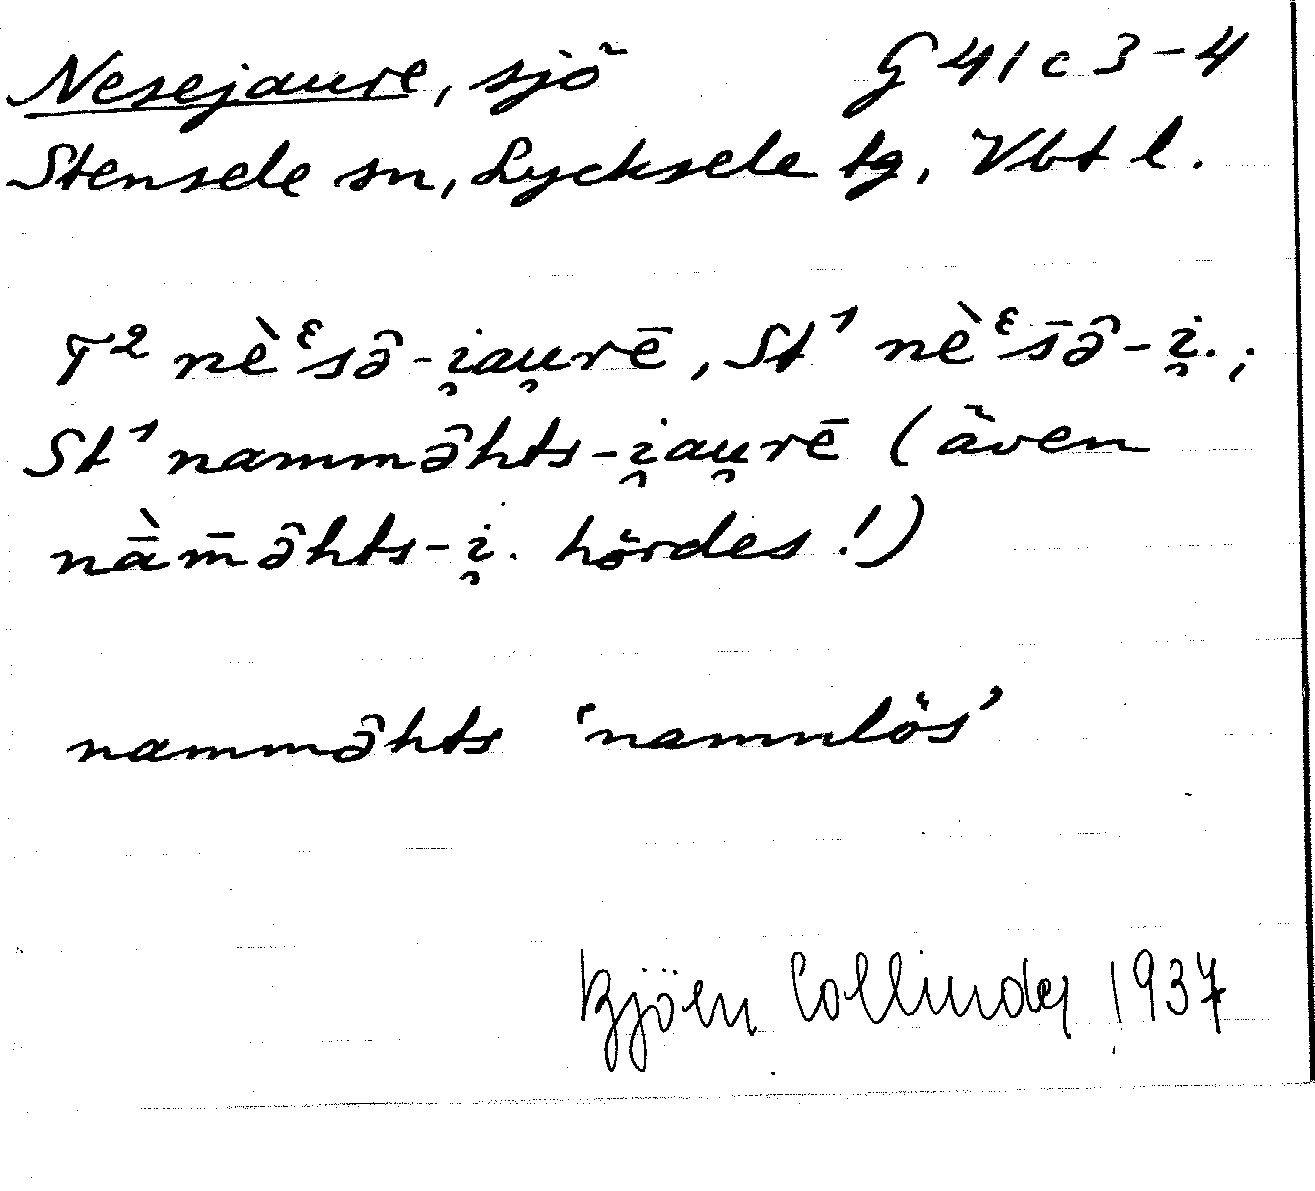 Nesejaure, sjö G 41 c 3-4
Stensele sn, Lycksele tg, Vbt l.
T² nè̀ᵋsə̑-i̯au̯rē, St¹ nèᵋs̄ə̑-i̯.;
St¹ nammə̑hts-i̯au̯rē (även
nā̀m̄ə̑hts-i̯. hördes!)
nammə̑hts 'namnlös'
Björn Collinder 1937